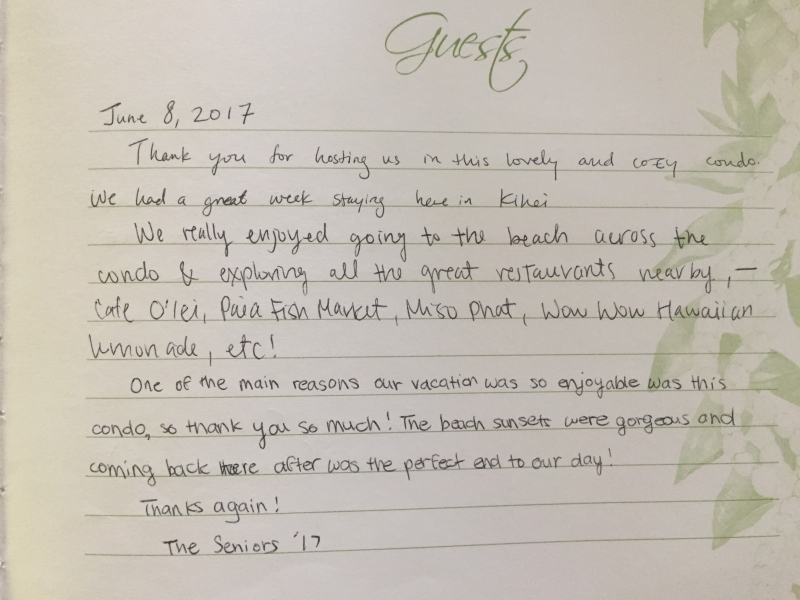 Guests
June 8, 2017
Thank you for hosting us in this lovely and cozy condo.
We had a great week staying here in Kihei
We really enjoyed going to the beach across the
condo & exploring all the great restaurants nearby, —
Cafe O'lei, Paia Fish Market, Miso Phat, Wow Wow Hawaiian
lemonade, etc!
One of the main reasons our vacation was so enjoyable was this
condo, so thank you so much! The beach sunsets were gorgeous and
coming back here after was the perfect end to our day!
Thanks again!
The Seniors '17